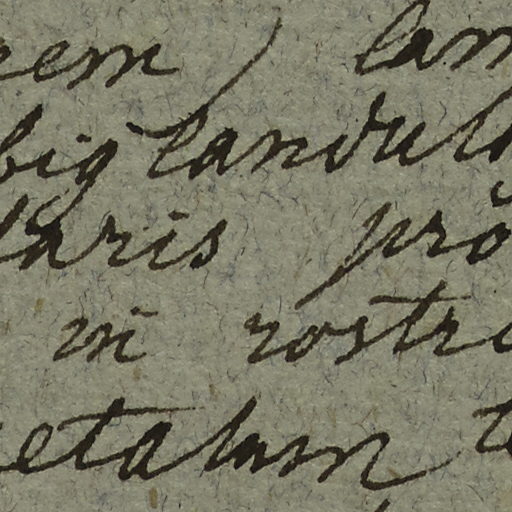 eem, lam
biglandul
laris pro
in rostr
etalum